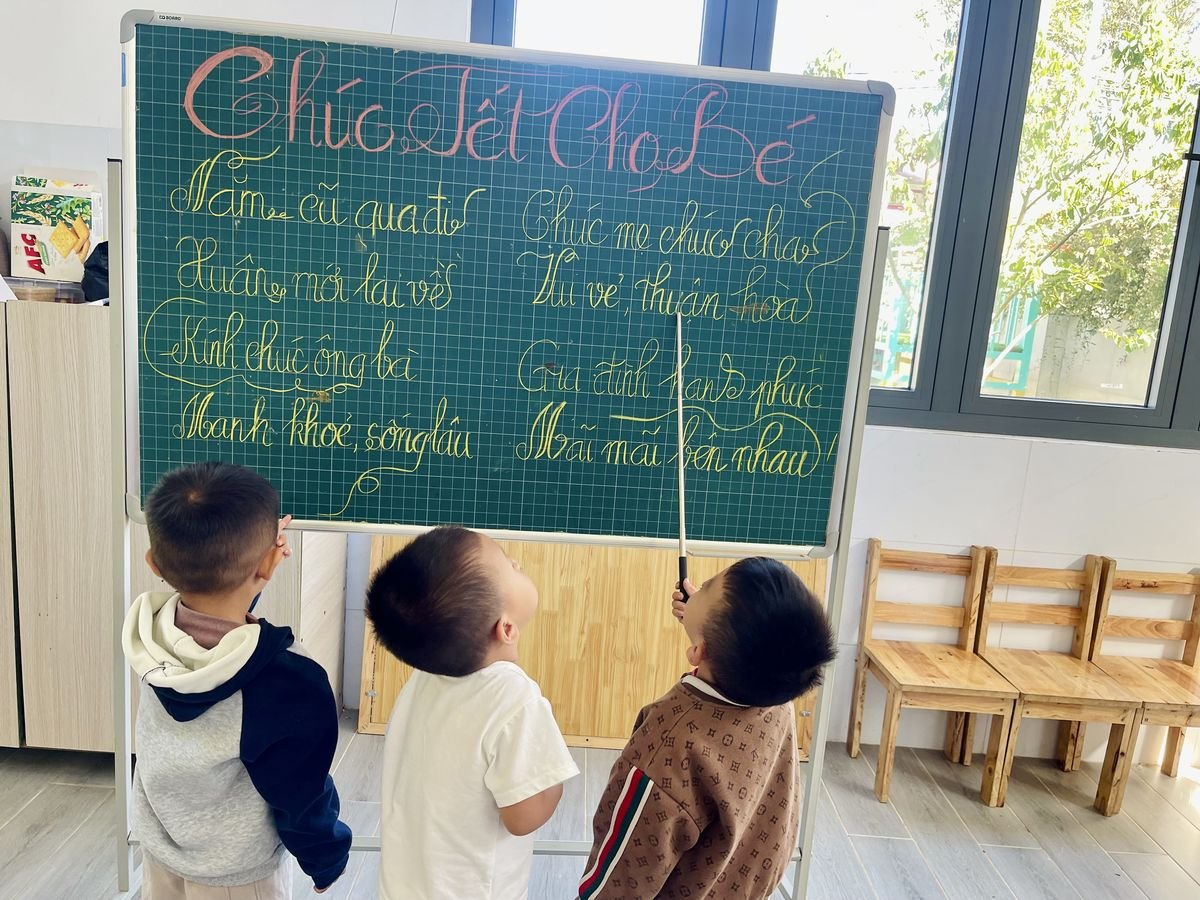 BOARD
Chúc Tết Cho Bé
Năm cũ qua đi
Xuân mới lại về
Kính chúc ông bà
Mạnh khoẻ, sống lâu
Chúc mẹ chúc cha
Vui vẻ, thuận hòa
Gia đình hạnh phúc
Mãi mãi bên nhau!
AFC